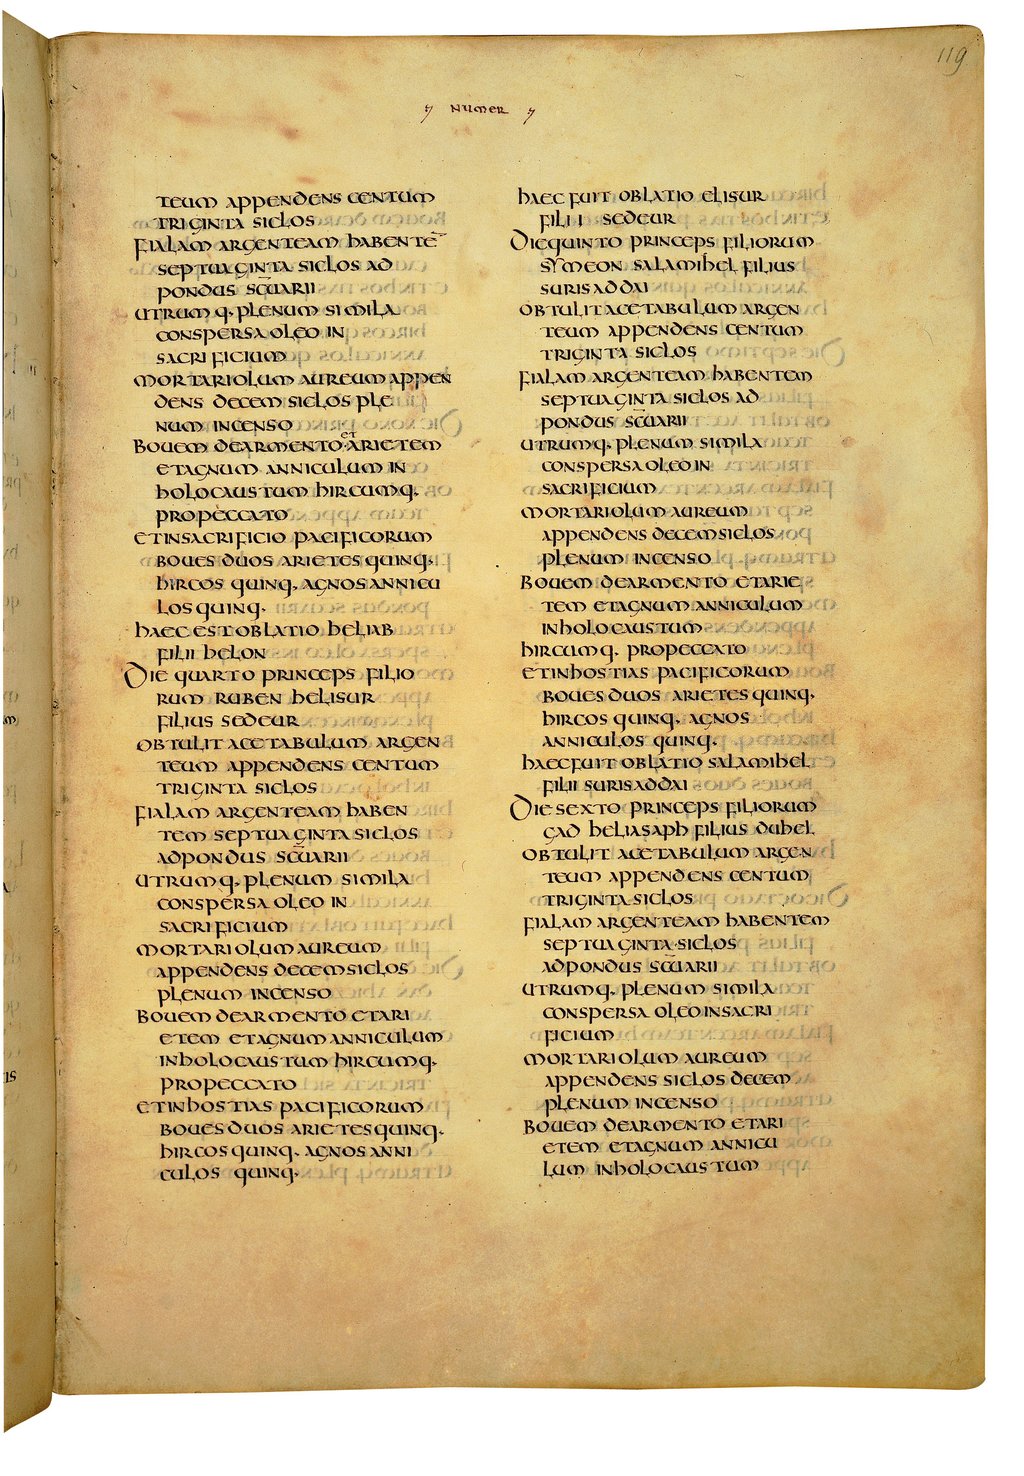 119
NUMER
TEUM APPENDENS CENTUM
TRIGINTA SICLOS
FIALAM ARGENTEAM HABENTĒ
SEPTUAGINTA SICLOS AD
PONDUS SC̄UARII
UTRUMQ· PLENUM SIMILA
CONSPERSA OLEO IN
SACRIFICIUM
MORTARIOLUM AUREUM APPEN
DENS DECEM SICLOS PLE
NUM INCENSO
BOUEM DEARMENTO et ARIETEM
ETAGNUM ANNICULUM IN
HOLOCAUSTUM HIRCUMQ·
PROPECCATO
ETINSACRIFICIO PACIFICORUM
BOUES DUOS ARIETES QUINQ·
HIRCOS QUINQ· AGNOS ANNICU
LOS QUINQ·
HAEC EST OBLATIO HELIAB
FILII HELON
DIE QUARTO PRINCEPS FILIO
RUM RUBEN HELISUR
FILIUS SEDEUR
OBTULIT ACETABULUM ARGEN
TEUM APPENDENS CENTUM
TRIGINTA SICLOS
FIALAM ARGENTEAM HABEN
TEM SEPTUAGINTA SICLOS
ADPONDUS SC̄UARII
UTRUMQ· PLENUM SIMILA
CONSPERSA OLEO IN
SACRIFICIUM
MORTARIOLUM AUREUM
APPENDENS DECEM SICLOS
PLENUM INCENSO
BOUEM DEARMENTO ETARI
ETEM ETAGNUM ANNICULUM
INHOLOCAUSTUM HIRCUMQ·
PROPECCATO
ETINHOSTIAS PACIFICORUM
BOUES DUOS ARIETES QUINQ·
HIRCOS QUINQ· AGNOS ANNI
CULOS QUINQ·
HAEC FUIT OBLATIO ELISUR
FILII SEDEUR
DIE QUINTO PRINCEPS FILIORUM
SYMEON SALAMIHEL FILIUS
SURISADDAI
OBTULIT ACETABULUM ARGEN
TEUM APPENDENS CENTUM
TRIGINTA SICLOS
FIALAM ARGENTEAM HABENTEM
SEPTUAGINTA SICLOS AD
PONDUS SC̄UARII
UTRUMQ· PLENUM SIMILA
CONSPERSA OLEO IN
SACRIFICIUM
MORTARIOLUM AUREUM
APPENDENS DECEM SICLOS
PLENUM INCENSO
BOUEM DEARMENTO ETARIE
TEM ETAGNUM ANNICULUM
INHOLOCAUSTUM
HIRCUMQ· PROPECCATO
ETINHOSTIAS PACIFICORUM
BOUES DUOS ARIETES QUINQ·
HIRCOS QUINQ· AGNOS
ANNICULOS QUINQ·
HAEC FUIT OBLATIO SALAMIHEL
FILII SURISADDAI
DIE SEXTO PRINCEPS FILIORUM
GAD HELIASAPH FILIUS DUHEL
OBTULIT ACETABULUM ARGEN
TEUM APPENDENS CENTUM
TRIGINTA SICLOS
FIALAM ARGENTEAM HABENTEM
SEPTUAGINTA SICLOS
ADPONDUS SC̄UARII
UTRUMQ· PLENUM SIMILA
CONSPERSA OLEO INSACRI
FICIUM
MORTARIOLUM AUREUM
APPENDENS SICLOS DECEM
PLENUM INCENSO
BOUEM DEARMENTO ETARI
ETEM ETAGNUM ANNICU
LUM INHOLOCAUSTUM